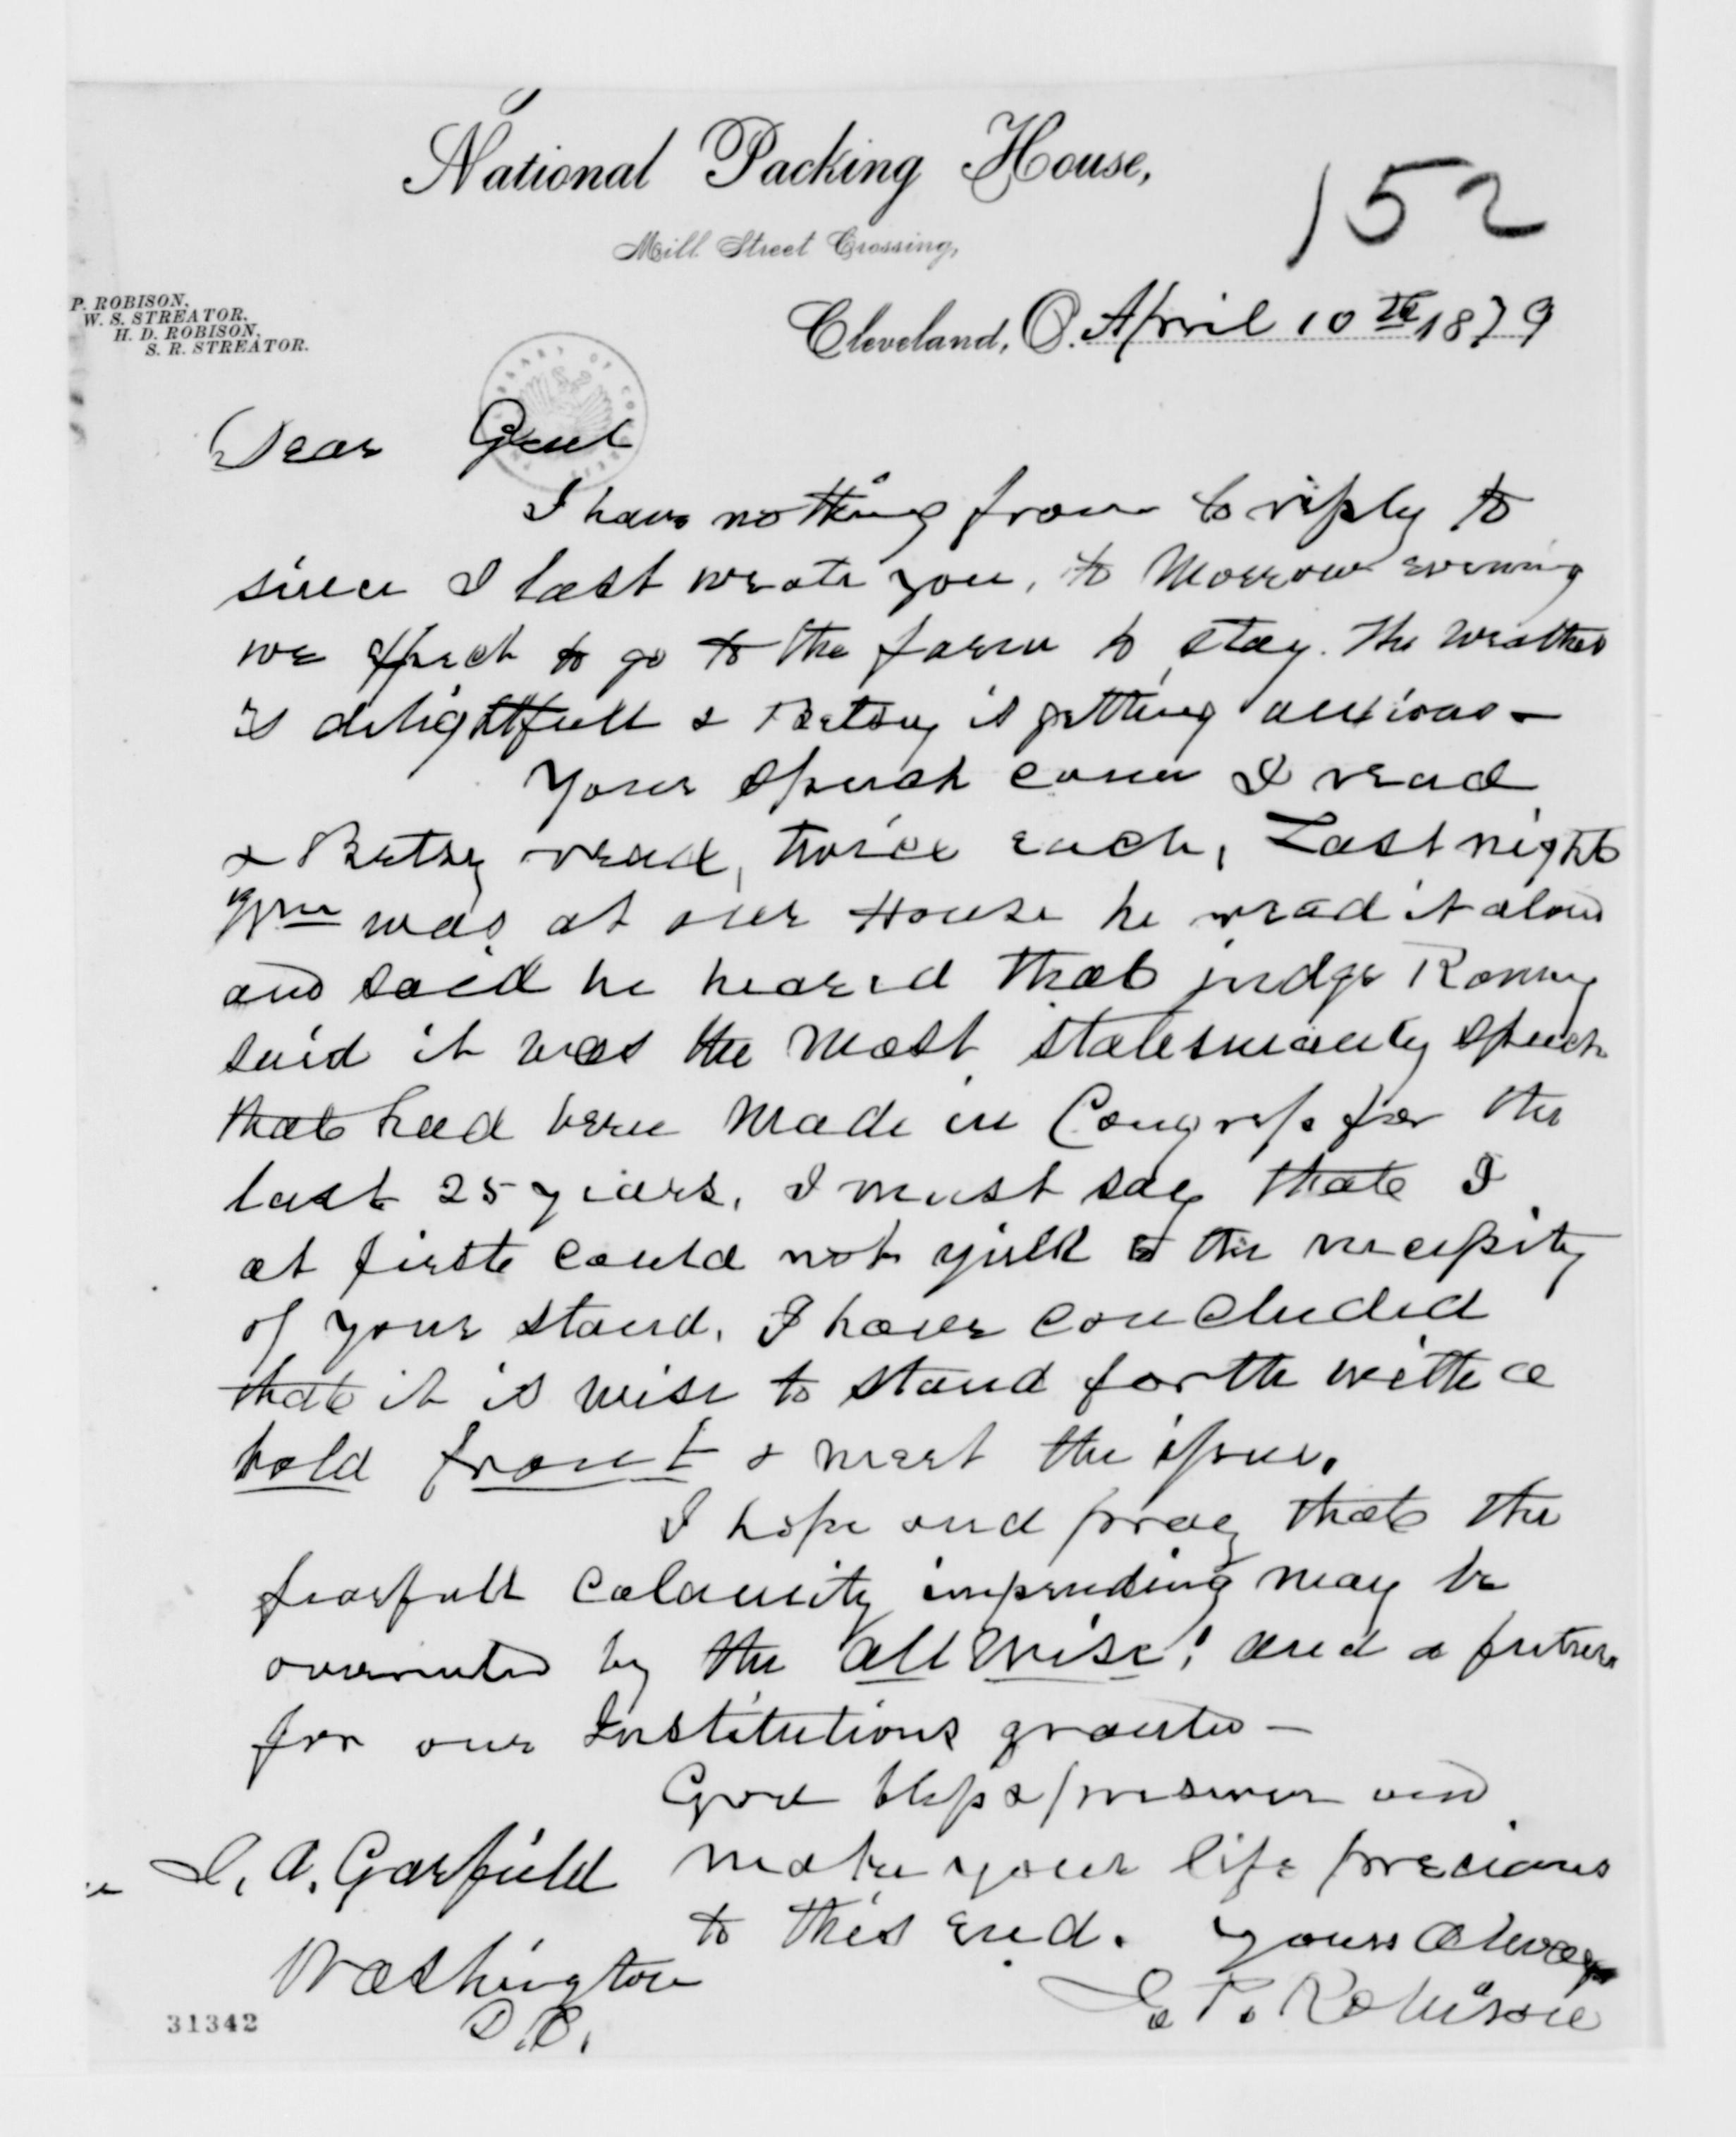 National Packing House,
152
Mill Street Crossing,
P. ROBISON,
W. S. STREATOR.
H. D. ROBISON,
S. R. STREATOR.
Cleveland, O. April 10th 1879
Dear Genl
I have nothing from to reply to
since I last wrote you, to Morrow evening
we expect to go to the farm to stay. The weather
is delightfull & Betsey is getting anxious —
Your Speech came I read
& Betsey read, twice each, Last night
Wm was at our House he read it aloud
and said he heared that judge Ranney
said it was the most statesmanly speech
that had been made in Congress for the
last 25 years, I must say that I
at first could not yield to the necessity
of your stand. I have concluded
that it is wise to stand forth with a
bold front & meet the issue.
I hope and pray that the
fearfull calamity impending may be
overruled by the all wise! and a future
for our Institutions granted —
God bless & preserve and
J. A. Garfield make your life precious
to this end. Yours always
Washington
D.C.
J. P. Robison
31342